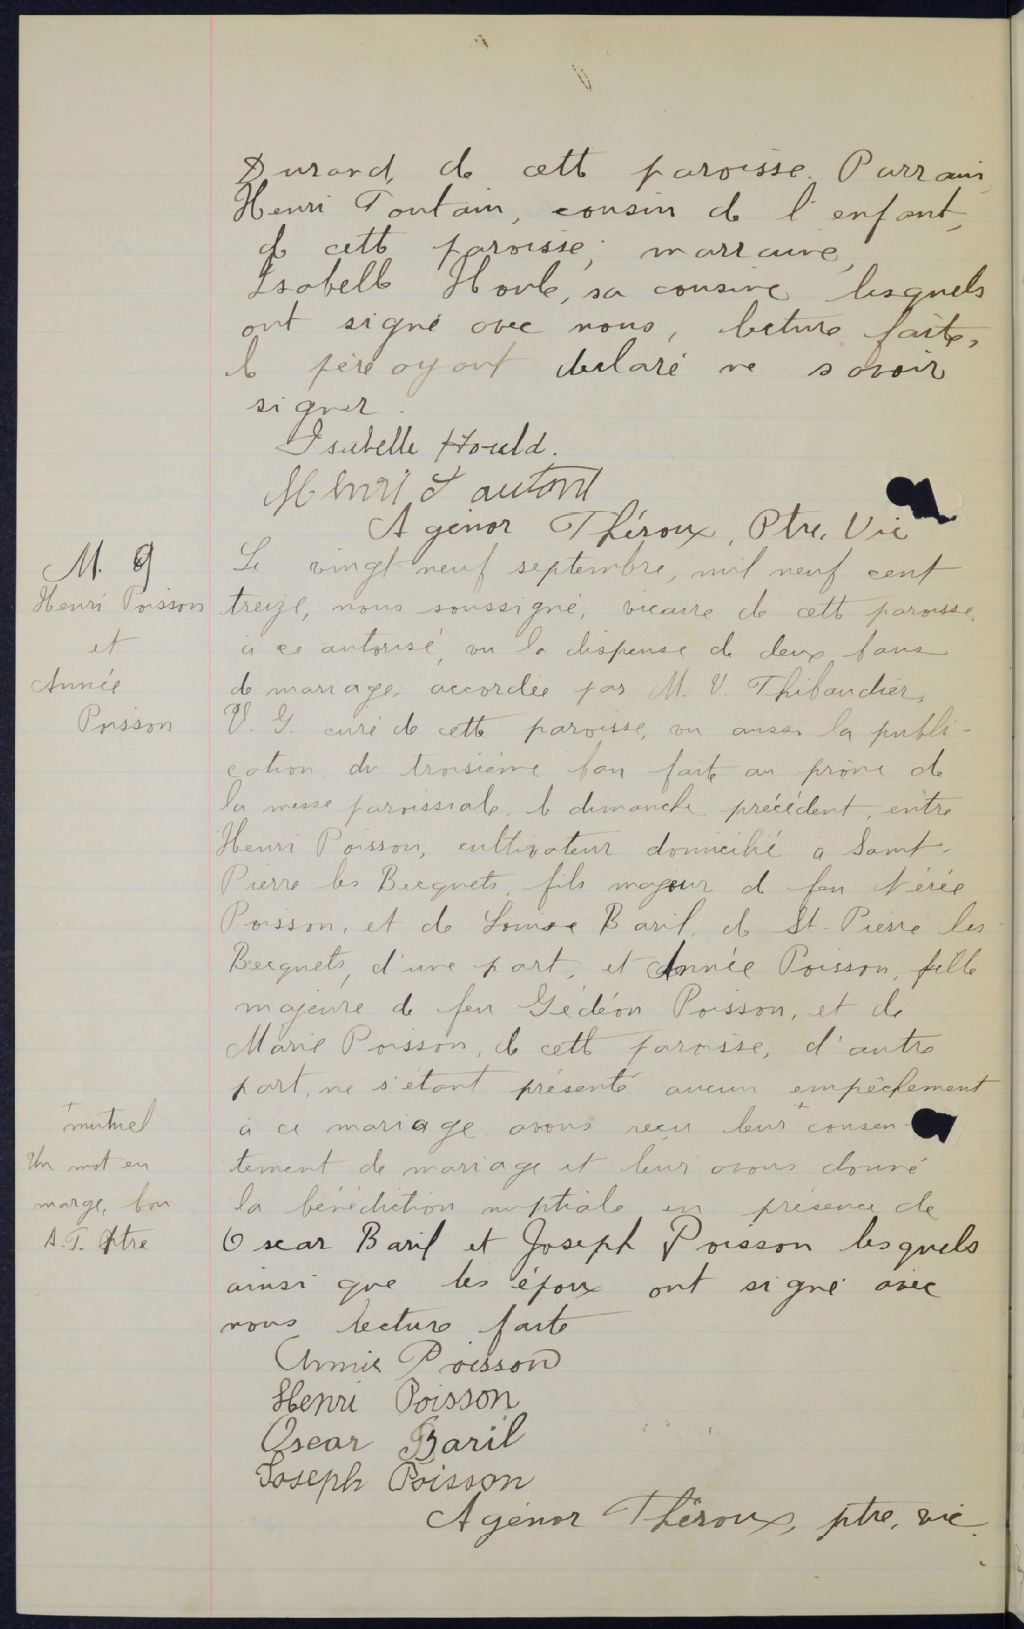 Durand, de cette paroisse. Parrain,
Henri Toutain, cousin de l'enfant,
de cette paroisse; marraine,
Isabelle Houle, sa cousine, lesquels
ont signé avec nous, lecture faite,
le père ayant declaré ne savoir
signer.
Isabelle Hould.
Henri Tautant
Agénor Théroux, Ptre, Vic
M. 9
Henri Poisson
et
Année
Poisson
Le vingt neuf septembre, mil neuf cent
treize, nous soussigné, vicaire de cette paroisse,
à ce autorisé, vu la dispense de deux bans
de mariage, accordée par M. V. Thibaudier,
V. G. curé de cette paroisse, vu aussi la publi-
cation du troisième ban faite au prône de
la messe paroissiale, le dimanche précédent, entre
Henri Poisson, cultivateur domicilié à Saint-
Pierre les Becquets, fils majeur de feu Nérée
Poisson, et de Louise Baril, de St-Pierre les
Becquets, d'une part, et Année Poisson, fille
majeure de feu Gédéon Poisson, et de
Marie Poisson, de cette paroisse, d'autre
part, ne s'étant présenté aucun empêchement
à ce mariage, avons reçu leur + consen-
tement de mariage et leur avons donné
la bénédiction nuptiale en présence de
Oscar Baril et Joseph Poisson lesquels
ainsi que les époux ont signé avec
nous lecture faite
+mutuel
Un mot en
marge, bon
A. T. Ptre
Annie Poisson
Henri Poisson
Oscar Baril
Joseph Poisson
Agénor Théroux, ptre, vic.